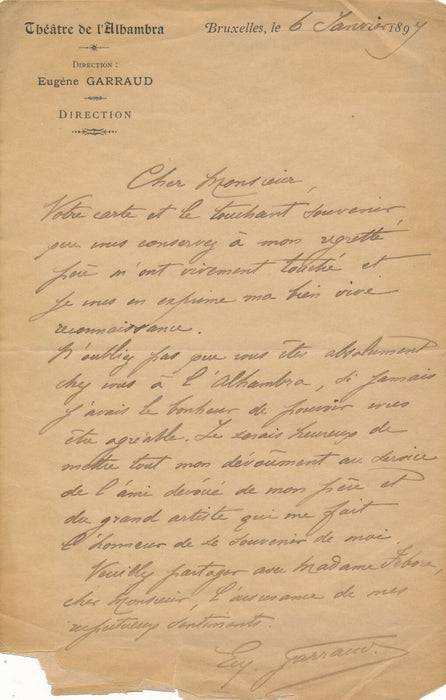 Théâtre de l'Alhambra
Bruxelles, le 6 Janvier 1897
DIRECTION :
Eugène GARRAUD
DIRECTION
Cher Monsieur,
Votre carte et le touchant souvenir
que vous conservez à mon regretté
père m'ont vivement touché et
je vous en exprime ma bien vive
reconnaissance.
N'oubliez pas que vous êtes absolument
chez vous à l'Alhambra, si jamais
j'avais le bonheur de pouvoir vous
être agréable. Je serais heureux de
mettre tout mon dévoûment au service
de l'ami dévoué de mon père et
du grand artiste qui me fait
l'honneur de se souvenir de moi.
Veuillez partager avec Madame Febvre,
cher Monsieur, l'assurance de mes
respectueux sentiments.
Eug. Garraud